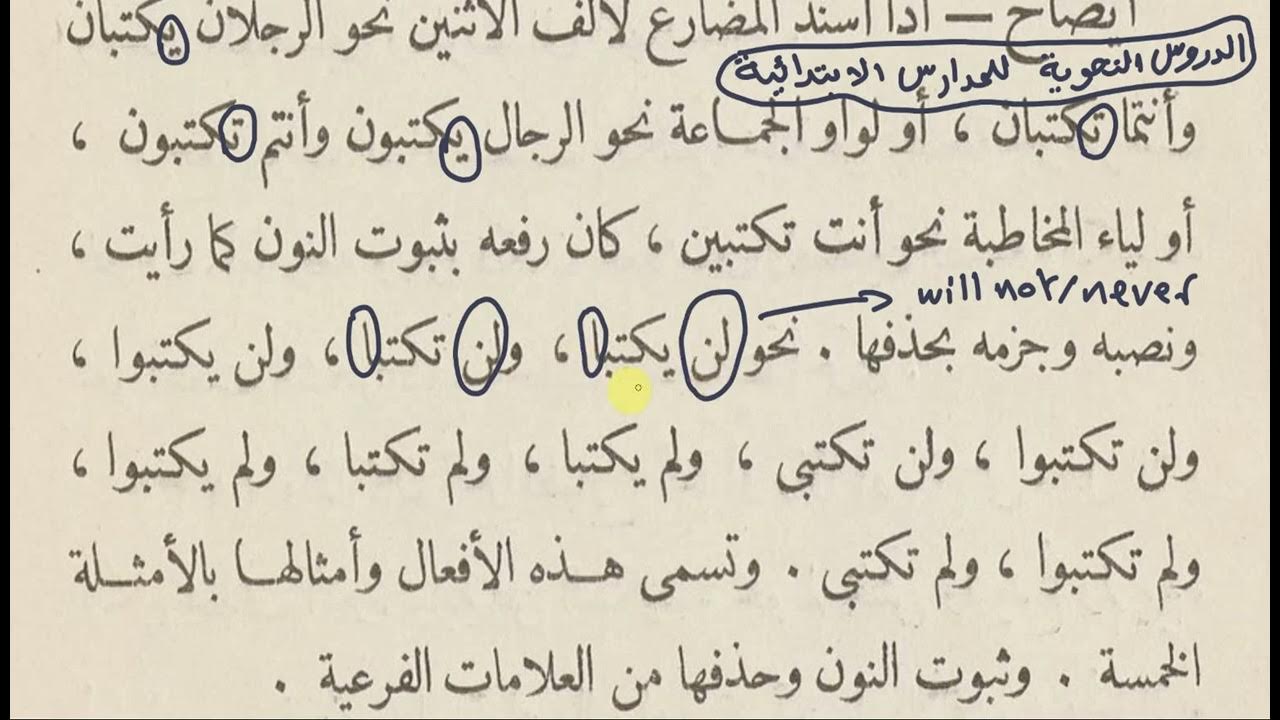 ايضاح — اذا اسند المضارع لألف الاثنين نحو الرجلان يكتبان
الدروس النحوية للمدارس الابتدائية
وأنتما تكتبان ، أو لواو الجماعة نحو الرجال يكتبون وأنتم تكتبون ،
أو لياء المخاطبة نحو أنت تكتبين ، كان رفعه بثبوت النون كما رأيت ،
will not/never
ونصبه وجزمه بحذفها . نحو لن يكتبا ، ولن تكتبا ، ولن يكتبوا ،
ولن تكتبوا ، ولن تكتبى ، ولم يكتبا ، ولم تكتبا ، ولم يكتبوا ،
ولم تكتبوا ، ولم تكتبى . وتسمى هذه الأفعال وأمثالها بالأمثلة
الخمسة . وثبوت النون وحذفها من العلامات الفرعية .